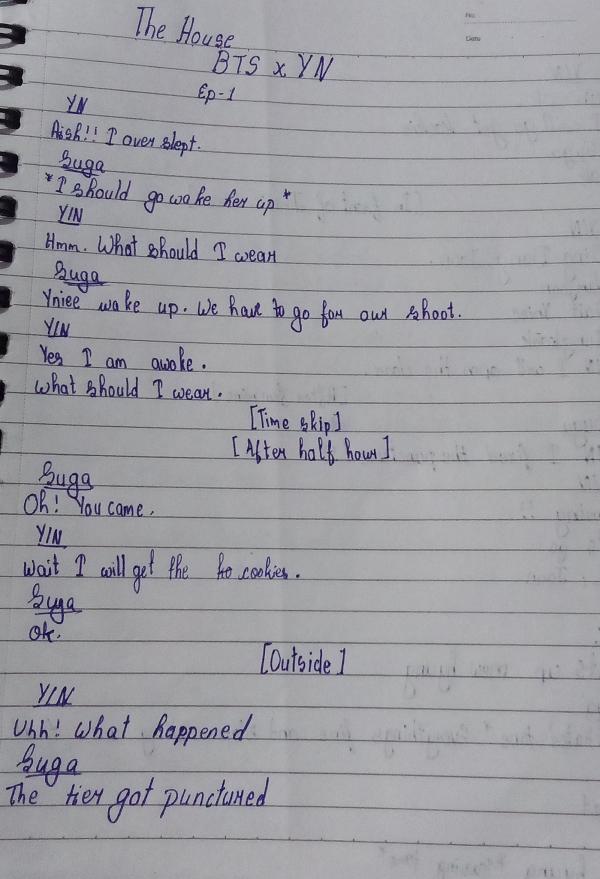 No.
Date
The House
BTS x YN
Ep-1
YN
Aish!! I over slept.
Suga
*I should go wake her up*
Y/N
Hmm. What should I wear
Suga
Yniee wake up. We have to go for our shoot.
Y/N
Yes I am awoke.
What should I wear.
[Time skip]
[After half hour]
Suga
Oh! You came.
Y/N
Wait I will get the ko cookies.
Suga
Ok.
[Outside]
Y/N
Uhh! What happened
Suga
The tier got punctured